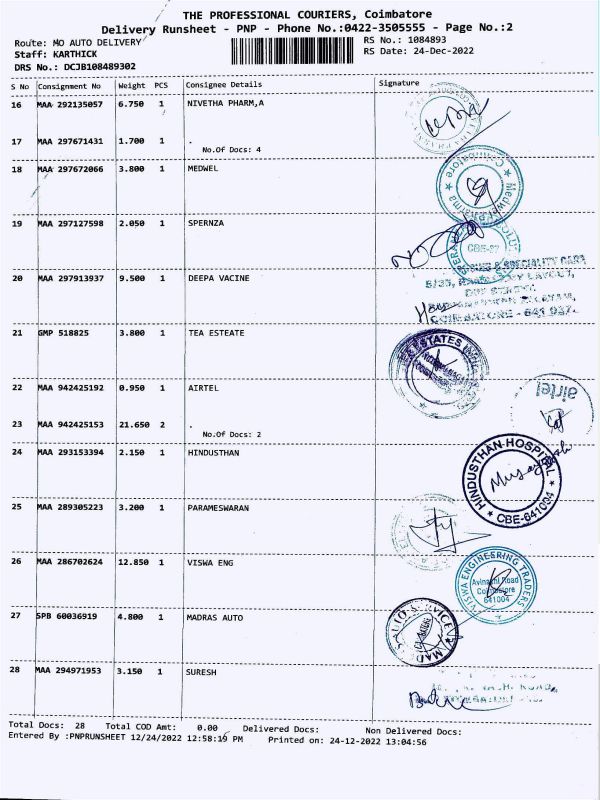 THE PROFESSIONAL COURIERS, Coimbatore
Delivery Runsheet - PNP - Phone No.:0422-3505555 - Page No.:2
Route: MO AUTO DELIVERY
RS No.: 1084893
Staff: KARTHICK
RS Date: 24-Dec-2022
DRS No.: DCJB108489302
S No Consignment No Weight PCS Consignee Details Signature
16 MAA 292135057 6.750 1 NIVETHA PHARM,A
17 MAA 297671431 1.700 1 .
No.Of Docs: 4
18 MAA 297672066 3.800 1 MEDWEL
19 MAA 297127598 2.050 1 SPERNZA
CBE-37
20 MAA 297913937 9.500 1 DEEPA VACINE
COIMBATORE - 641 037.
21 GMP 518825 3.800 1 TEA ESTEATE
22 MAA 942425192 0.950 1 AIRTEL
airtel
23 MAA 942425153 21.650 2 .
No.Of Docs: 2
24 MAA 293153394 2.150 1 HINDUSTHAN
HINDUSTHAN HOSPITAL
* CBE-641004 *
25 MAA 289305223 3.200 1 PARAMESWARAN
26 MAA 286702624 12.850 1 VISWA ENG
VISWA ENGINEERING TRADERS
Avinashi Road
Coimbatore
641004
27 SPB 60036919 4.800 1 MADRAS AUTO
MADRAS AUTO SERVICE
28 MAA 294971953 3.150 1 SURESH
Total Docs: 28 Total COD Amt: 0.00 Delivered Docs: Non Delivered Docs:
Entered By :PNPRUNSHEET 12/24/2022 12:58:19 PM Printed on: 24-12-2022 13:04:56